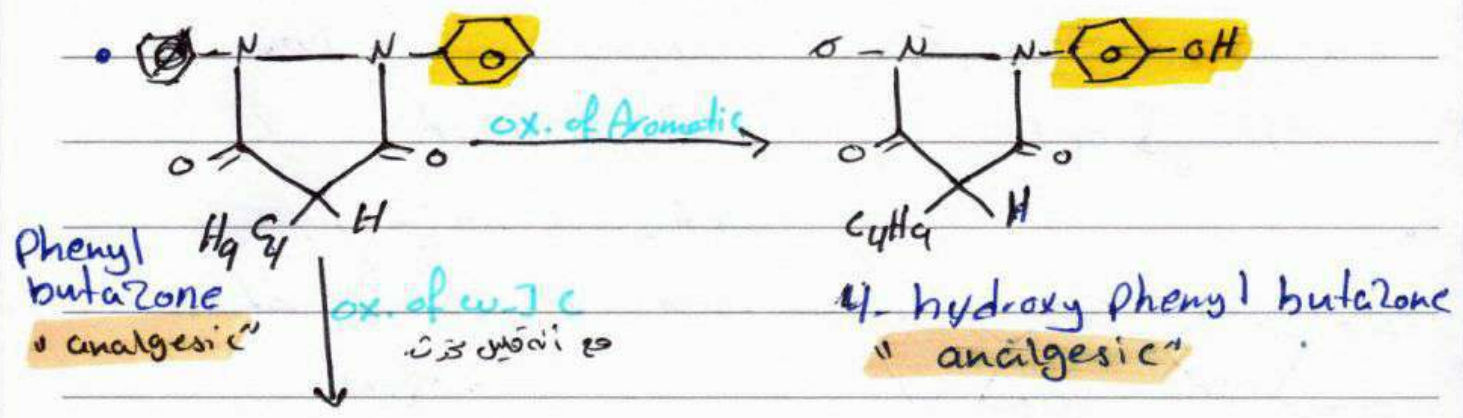 N N
σ - N N - OH
ox. of Aromatic
O O
O O
H9 C4 H
C4H9 H
Phenyl
butazone
" analgesic"
ox. of ω-1 C
مع أنه قليل تحدث
4- hydroxy phenyl butazone
" analgesic"